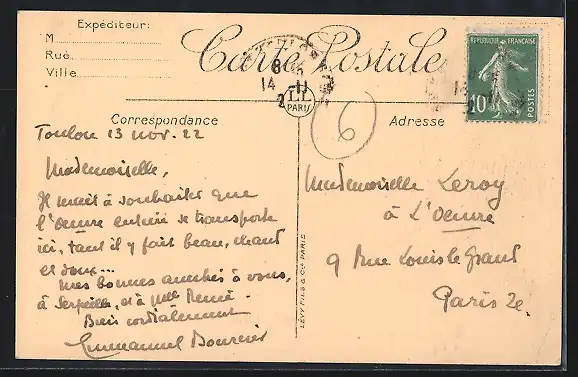 Expéditeur:
M
Rue
Ville
Carte Postale
TOULON
8
14 -11
2
LL
PARIS
REPUBLIQUE FRANÇAISE
10c
POSTES
6
Correspondance
Adresse
Toulon 13 nov. 22
Mademoiselle,
Il serait à souhaiter que
l'Oeuvre entière se transporte
ici, tant il y fait beau, chaud
et doux...
Mes bonnes amitiés à vous,
à Serpeille, et à Mlle
Bien cordialement
Emmanuel Bourcier
Mademoiselle Leroy
à L'Oeuvre
9 Rue Louis le Grand
Paris 2e.
LÉVY FILS & Cie PARIS